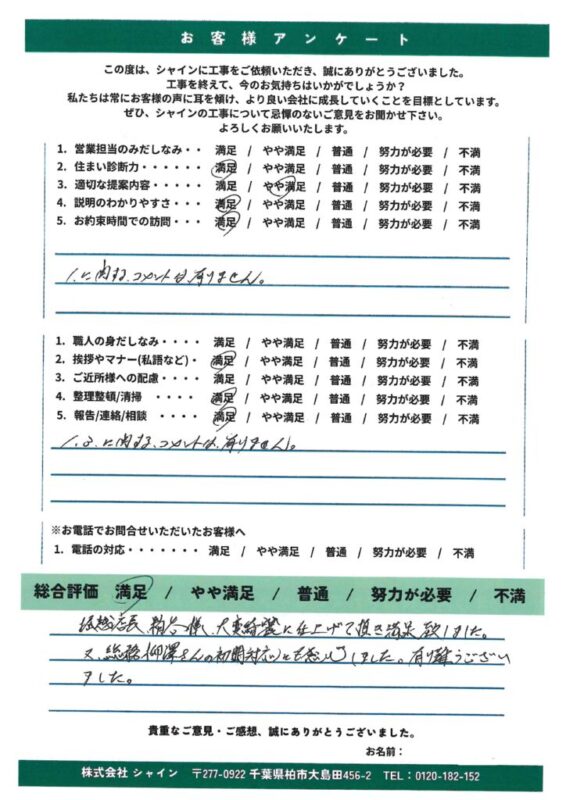 お客様アンケート
この度は、シャインに工事をご依頼いただき、誠にありがとうございました。
工事を終えて、今のお気持ちはいかがでしょうか?
私たちは常にお客様の声に耳を傾け、より良い会社に成長していくことを目標としています。
ぜひ、シャインの工事について忌憚のないご意見をお聞かせ下さい。
よろしくお願いいたします。
1. 営業担当のみだしなみ・・ 満足 / やや満足 / 普通 / 努力が必要 / 不満
2. 住まい診断力・・・・・・ 満足 / やや満足 / 普通 / 努力が必要 / 不満
3. 適切な提案内容・・・・・ 満足 / やや満足 / 普通 / 努力が必要 / 不満
4. 説明のわかりやすさ・・・ 満足 / やや満足 / 普通 / 努力が必要 / 不満
5. お約束時間での訪問・・・ 満足 / やや満足 / 普通 / 努力が必要 / 不満
1.に関する、コメントは有りません。
1. 職人の身だしなみ・・・・ 満足 / やや満足 / 普通 / 努力が必要 / 不満
2. 挨拶やマナー(私語など)・ 満足 / やや満足 / 普通 / 努力が必要 / 不満
3. ご近所様への配慮・・・・ 満足 / やや満足 / 普通 / 努力が必要 / 不満
4. 整理整頓/清掃 ・・・・ 満足 / やや満足 / 普通 / 努力が必要 / 不満
5. 報告/連絡/相談 ・・・・ 満足 / やや満足 / 普通 / 努力が必要 / 不満
1.3.に関する、コメントは、有りません。
※お電話でお問合せいただいたお客様へ
1. 電話の対応・・・・・・・ 満足 / やや満足 / 普通 / 努力が必要 / 不満
総合評価 満足 / やや満足 / 普通 / 努力が必要 / 不満
店長 様、大変綺麗に仕上げて頂き満足致しました。
又、総務柳澤さんの初期対応にも感心しました。有り難うござい
ました。
貴重なご意見・ご感想、誠にありがとうございました。
お名前:
株式会社 シャイン 〒277-0922 千葉県柏市大島田456-2 TEL:0120-182-152